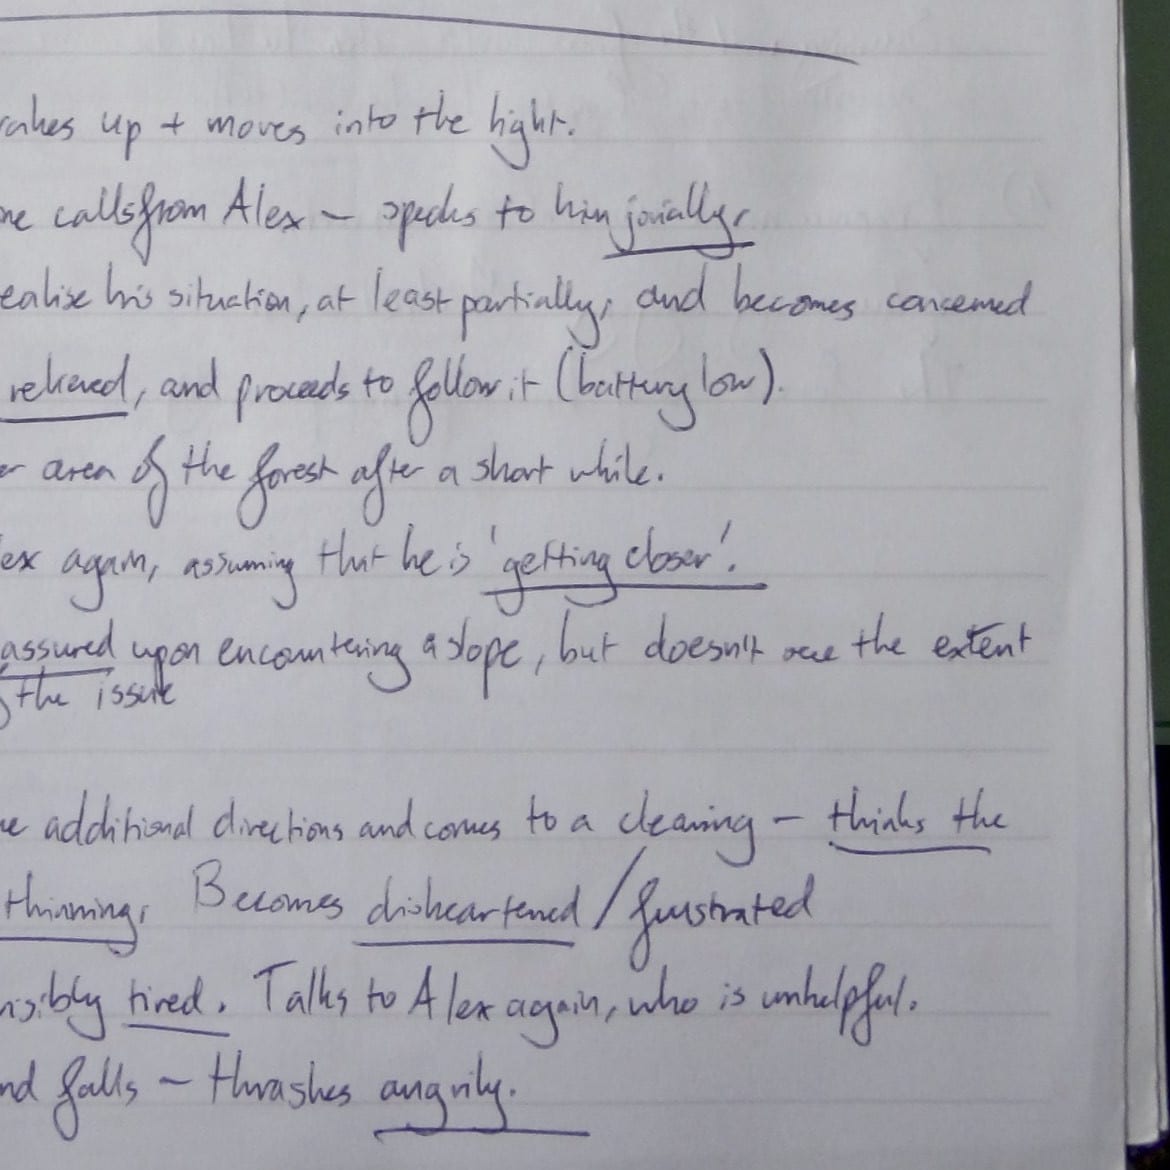 akes up + moves into the light.
ne calls from Alex – speaks to him jovially.
ealise his situation, at least partially, and becomes concerned
relieved, and proceeds to follow it (battery low).
er area of the forest after a short while.
ex again, assuming that he is 'getting closer'.
assured upon encountering a slope, but doesn't see the extent
the issue
e additional directions and comes to a clearing – thinks the
thinning. Becomes disheartened / frustrated
isibly tired. Talks to Alex again, who is unhelpful.
nd falls – thrashes angrily.